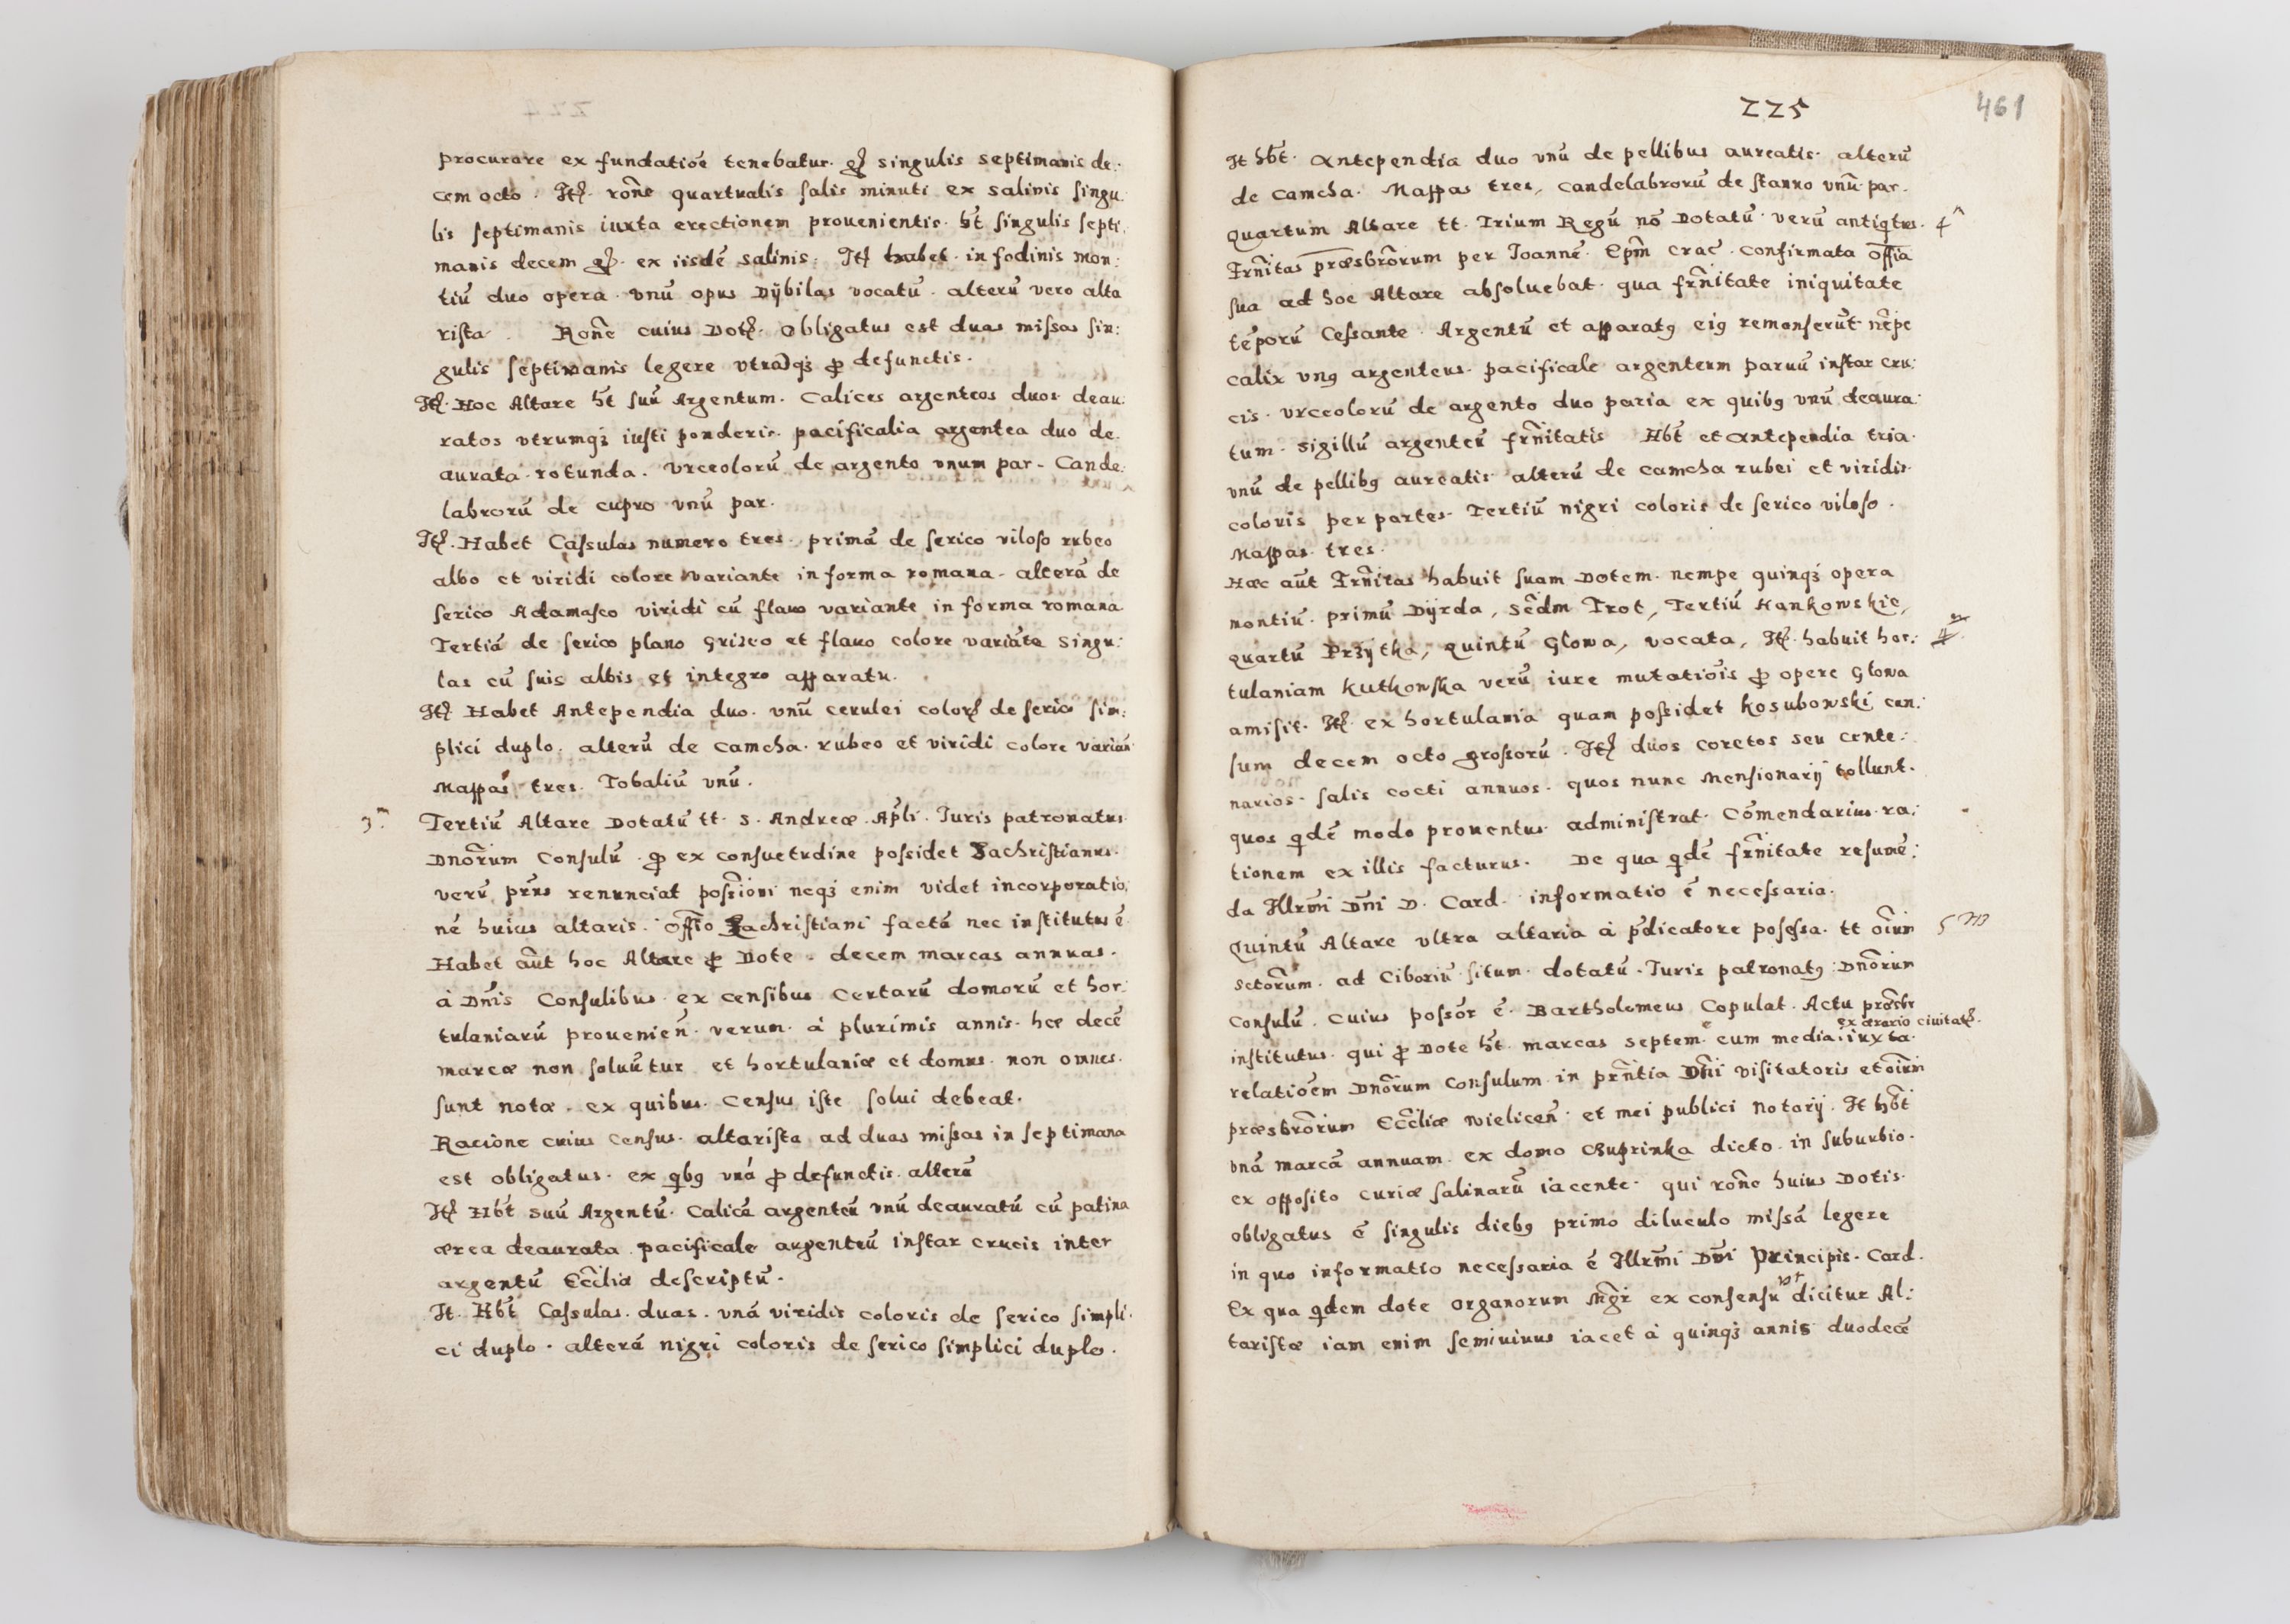 procurare ex fundatiōe tenebatur. gꝭ singulis septimanis de:
cem octo. Itꝭ. rōne quartualis salis minuti ex salinis singu
lis septimanis iuxta erectionem prouenientis. ht̄ singulis septi:
manis decem gꝭ. ex iisdē salinis. Itꝭ habet in fodinis mon:
tiū duo opera. vnū opus Dÿbilas vocatū. alterū vero alta
rista. Rōne cuius Dotꝭ. obligatus est duas missas sin:
gulis septimanis legere vtramqꝫ ꝓ defunctis.
Itꝭ. Hoc Altare ht̄ suū Argentum. Calices argenteos duos deau:
ratos vtrumqꝫ iusti ponderis. pacificalia argentea duo de.
aurata rotunda. Vrceolorū de argento vnum par. Cande:
labrorū de cupro vnū par.
Itꝭ. Habet Casulas numero tres. primā de serico viloso rubeo
albo et viridi colore variante in forma romana. alterā de
serico Adamasco viridi cū flauo variante in forma romana
Tertiā de serico plano griseo et flauo colore variāte singu:
las cū suis albis et integro apparatu.
Itꝭ Habet Antependia duo. vnū cerulei colorꝭ de serico sim:
plici duplo. alterū de camcha. rubeo et viridi colore varian
Mappas tres. Tobaliū vnū.
3m Tertiū Altare Dotatū tt. S. Andreæ. Apl̄i. Juris patronatus
Dnōrum Consulū. ꝓ ex consuetudine possidet Sachristianus.
verū prūs renunciat possīoni neqꝫ enim videt incorporatio:
nē huius altaris. offīo Sachristiani factā nec institutus ē
Habet aūt hoc Altare ꝓ Dote. decem marcas annuas.
à Dn̄is Consulibus ex censibus Certarū domorū et hor:
tulaniarū prouenien̄. verum. à plurimis annis. hæ decē
marcæ non soluūtur et hortulaniæ et domus. non omnes.
sunt notæ. ex quibus. Census iste solui debeat.
Racione cuius Census. altarista ad duas missas in septimana
est obligatus. ex qbꝰ vnā ꝓ defunctis. alterā
Itꝭ Hbt̄ suū Argentū. Calicē argenteū vnū deauratū cū patina
ærea deaurata. pacificale argenteū instar crucis inter
argentū Ecc̄liæ descriptū.
It. Hbt̄ Casulas. duas. vnā viridis coloris de serico simpli.
ci duplo. alterā nigri coloris de serico simplici duplo.
225
461
It hbt̄. Antependia duo vnū de pellibus aureatis. alterū
de camcha. Mappas tres, candelabrorū de stanno vnū par.
Quartum Altare tt. Trium Regū nō Dotatū. verū antiqtus. 4
Frn̄itas præsbrōrum per Joannē. Epm̄ Crac̄. confirmata offīa
sua ad hoc Altare absoluebat. qua frn̄itate iniquitate
tēporū Cessante. Argentū et apparatꝰ eiꝰ remanserūt nēpe
calix vnꝰ argenteus. pacificale argenteum paruū instar cru:
cis. vrceolorū de argento duo paria ex quibꝰ vnū deaura:
tum. sigillū argenteū frn̄itatis Hbt̄ et Antependia tria.
vnū de pellibꝰ aureatis alterū de camcha rubei et viridis
coloris per partes. Tertiū nigri coloris de serico viloso.
Mappas tres.
Hæc aūt Frn̄itas habuit suam Dotem. nempe quinqꝫ opera
montiū. primū Dÿrda, Scd̄m Trot, Tertiū Hankowskie,
quartū Przÿtka, quintū Glowa, vocata, Itꝭ. habuit hor:
tulaniam Kutkowska verū iure mutatiōis ꝓ opere Glowa
amisit. Itꝭ. ex hortulania quam possidet Kosubowski cen:
sum decem octo grossorū. Itꝭ duos coretos seu cente:
narios. salis cocti annuos. quos nunc Mensionarij tollunt.
quos qdē modo prouentus administrat. Cōmendarius. ra:
tionem ex illis facturus. De qua qdē frn̄itate resumē:
da Illrm̄i Dn̄i D. Card. informatio ē necessaria.
Quintū Altare vltra altaria à pdicatore possessa. tt oīum 5 m
Sctōrum. ad Ciboriū situm. dotatū. Juris patronatꝰ Dnōrum
Consulū. cuius possōr ē. Bartholomeus Copulat. Actu præsbr
ex ærario ciuitatꝭ.
institutus. qui ꝓ Dote ht̄. marcas septem. cum media. iuxta
relatiōem Dnōrum Consulum in prn̄tia Dn̄i visitatoris et oīum
præsbrōrum Ecc̄liæ wielicen̄. et mei publici Notarij. It hbt̄
vnā marcā annuam. ex domo Csuprinka dicto. in suburbio.
ex opposito curiæ salinarū iacente. qui rōne huius Dotis.
obligatus ē singulis diebꝰ primo diluculo missā legere
in quo informatio necessaria ē Illrm̄i Dn̄i Principis. Card.
Ex qua qdem dote organorum Mgr̄ ex consensu vt dicitur Al:
taristæ iam enim semiuiuus iacet à quinqꝫ annis duodecē